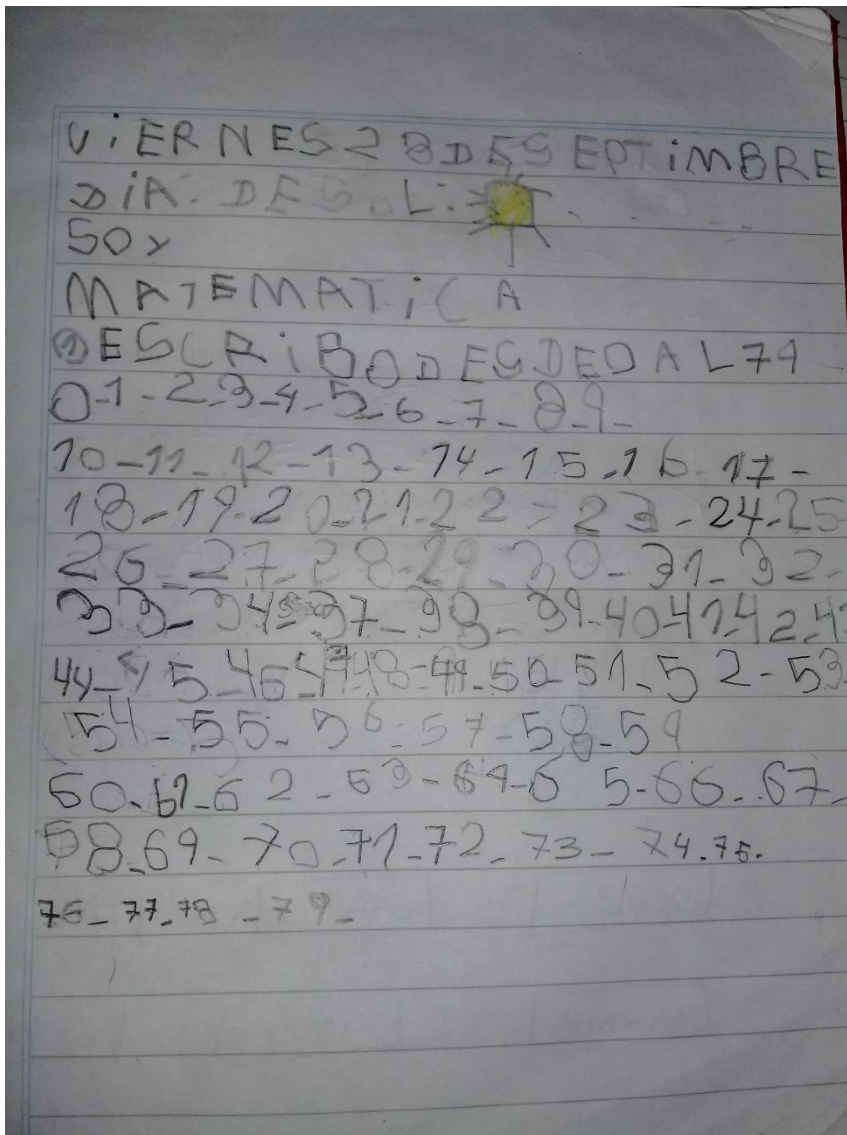 ViERNES 28 DE SEPTiMBRE
DiA: DE SOL:
SOY
MATEMATiCA
① ESCRiBO DESDE 0 AL 79
0-1-2-3-4-5-6-7-8-9-
10-11-12-13-14-15-16-17-
18-19-20-21-22-23-24-25
26-27-28-29-30-31-32-
33-34-37-38-39-40-41-42-43
44-45-46-47-48-49-50-51-52-53
54-55-56-57-58-59
60-61-62-63-64-65-66-67-
68-69-70-71-72-73-74-75-
76-77-78-79-